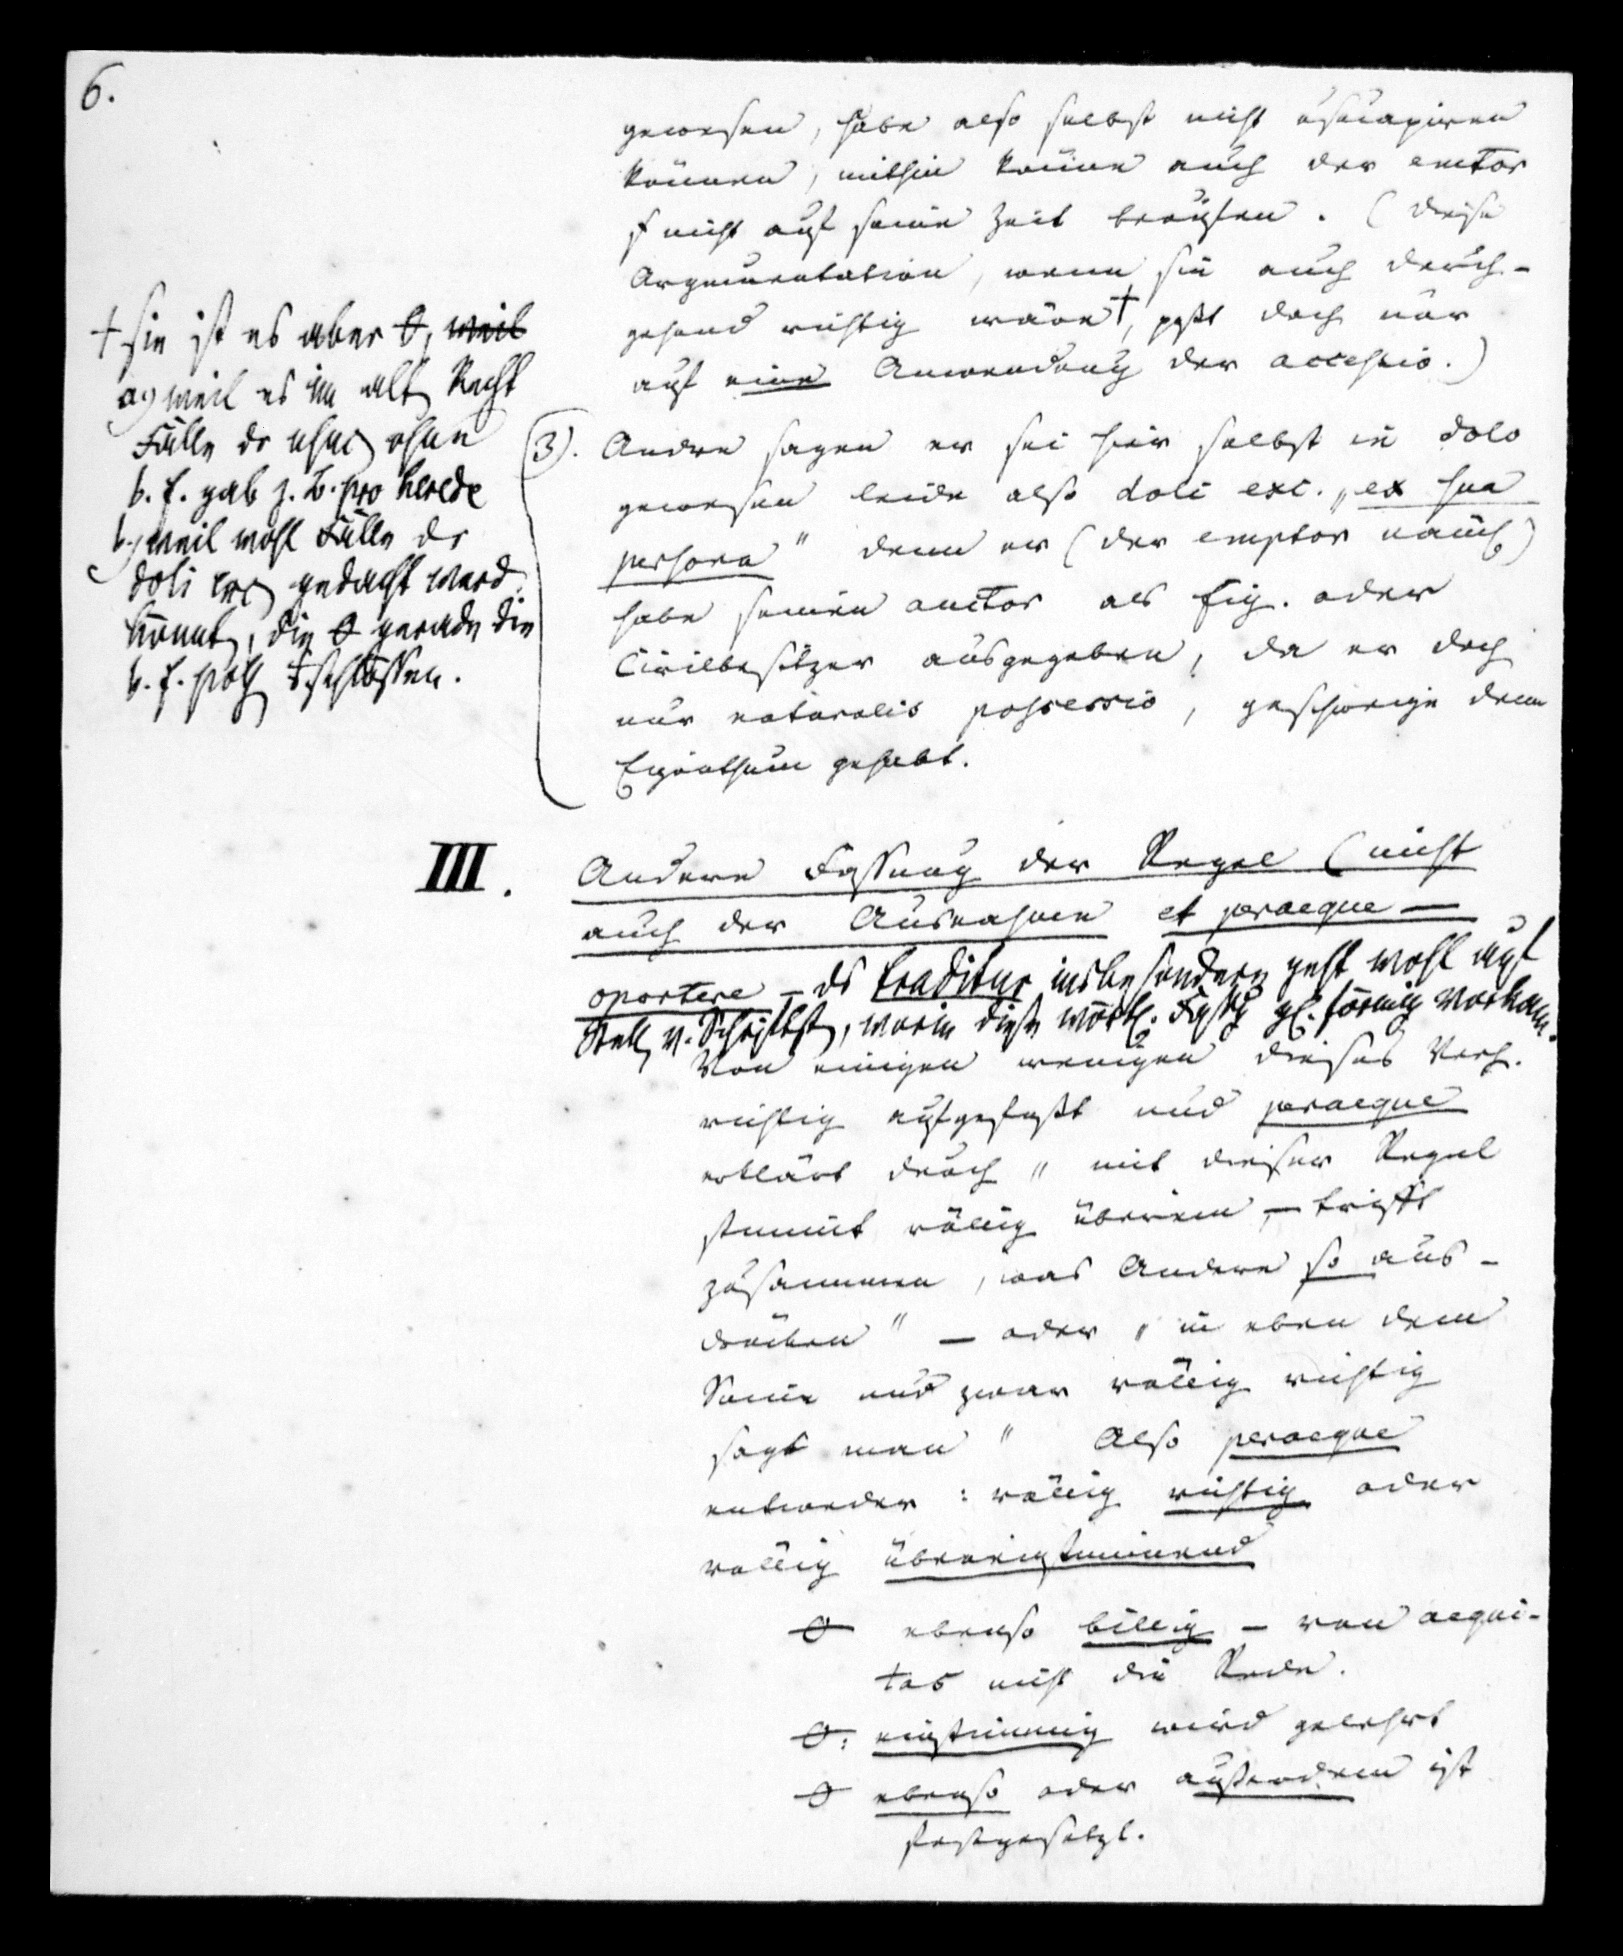 6.
gewesen, habe also selbst nicht usucapiren
können, mithin könne auch der emtor
s nicht auf seine Zeit berufen. (Diese
Argumentation, wenn sie auch durch-
gehend richtig wäre†, paßt doch nur
auf eine Anwendung der accessio.)
† sie ist es aber 0, weil
a.) weil es im alt Recht
Fälle der ohne
b. f. gab z. B. pro herede
b.) weil wohl Fälle der
doli exc gedacht werd.
könnt, die 0 gerade die
b. f. schlössen.
3). Andre sagen er sei hier selbst in dolo
gewesen leide also doli exc. „ex sua
persona" denn er (der emptor nämlich)
habe seinen auctor als Eig. oder
Civilbesitzer ausgegeben, da er doch
nur naturalis possessio, geschweige denn
Eigenthum gehabt.
III. Andere Fassung der Regel (nicht
auch der Ausnahme et peraeque —
oportere — ds traditur insbesondere geht wohl auf
Stell v. Schriftst, worin diese wörtl. Fassg gl. förmig vorkam.
Von einigen wenigen dieses Verh.
richtig aufgefaßt und peraeque
erklärt durch „mit dieser Regel
stimmt völlig überein, — trifft
zusammen, was Andere so aus-
drücken" — oder „in eben dem
Sinne und zwar völlig richtig
sagt man" Also peraeque
entweder: völlig richtig oder
völlig übereinstimmend
0 ebenso billig — von aequi-
tas nicht die Rede.
0: einstimmig wird gelehrt
0 ebenso oder außerdem ist
festgesetzt.